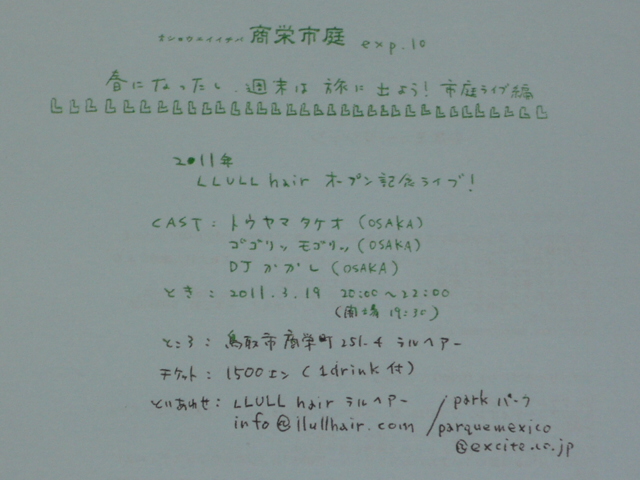 オショウエイイチバ 商栄市庭 exp.10
春になったし、週末は旅に出よう！市庭ライブ編
2011年
LLULL hair オープン記念ライブ！
CAST： トウヤマタケオ（OSAKA）
ゴゴリッ モゴリッ（OSAKA）
DJ かかし（OSAKA）
とき： 2011.3.19 20:00〜22:00
（開場 19:30）
ところ： 鳥取市商栄町251-4 ラルヘアー
チケット： 1500エン（1drink付）
といあわせ： LLULL hair ラルヘアー / park パーク
info@llullhair.com / parquemexico
@excite.co.jp